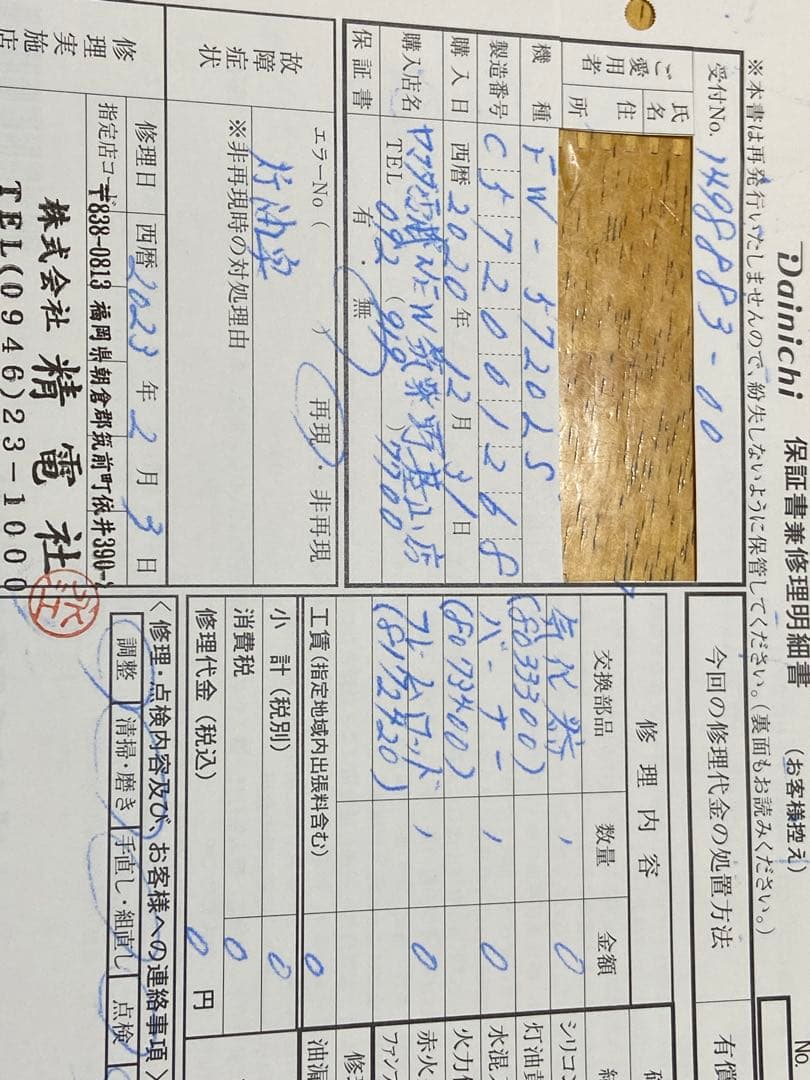 Dainichi 保証書兼修理明細書 (お客様控え)
※本書は再発行いたしませんので、紛失しないように保管してください。(裏面もお読みください。)
受付No. 1498883-00
ご愛用者
氏名
住所
機種 FW-5720LS
製造番号 C572001268
購入日 西暦2020年12月31日
購入店名 ヤマダ NEW 基山店
TEL 092 (919) 7700
保証書 有・無
故障症状
エラーNo ( ) 再現・非再現
灯油臭
※非再現時の対処理由
修理実施店
修理日 西暦2023年2月3日
指定店コード
〒838-0813 福岡県朝倉郡筑前町依井390-
株式会社 精電社
TEL(0946)23-1000
今回の修理代金の処置方法
有償
No.
修理内容
交換部品 数量 金額
気化器 1 0
(8033300)
バーナー 1 0
(8073400)
フレームロッド 1 0
(8172420)
工賃(指定地域内出張料含む) 0
小計(税別) 0
消費税 0
修理代金(税込) 0円
シリコン
灯油
水混入
火力
赤火
ファン
油漏
<修理・点検内容及び、お客様への連絡事項>
調整 清掃・磨き 手直し・組直し 点検